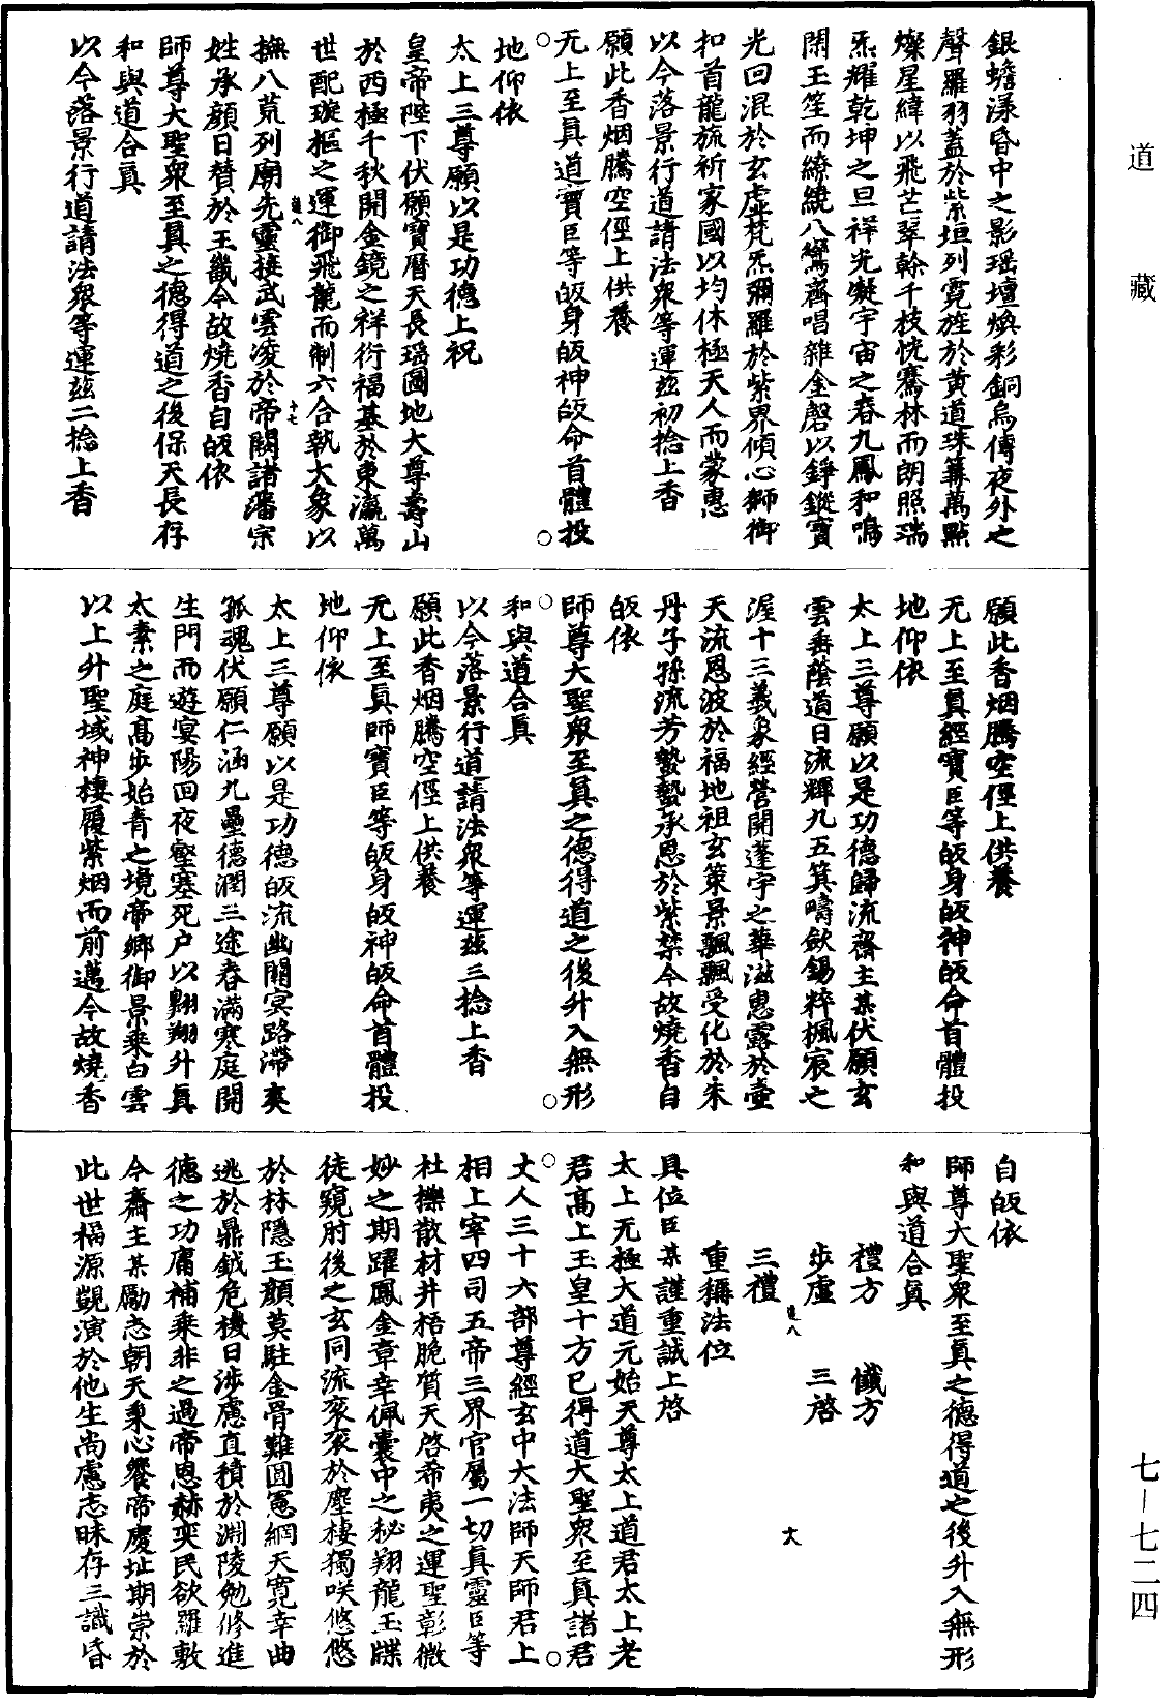 道藏
七—七二四
銀蟾漾昏中之影瑶壇煥彩銅烏傳夜外之
聲羅羽蓋於紫垣列霓旌於黃道珠𦶟萬點
燦星緯以飛芒翠幹千枝恍騫林而朗照瑞
炁耀乾坤之旦祥光凝宇宙之春九鳳和鳴
閑玉笙而繚繞八鸞齊唱雜金磬以錚鏦寶
光回混於玄虛梵炁彌羅於紫界傾心獅御
扣首龍旂祈家國以均休極天人而蒙惠
以今落景行道請法衆等運玆初捻上香
願此香烟騰空徑上供養
无上至真道寶臣等皈身皈神皈命首體投
地仰依
太上三尊願以是功德上祝
皇帝陛下伏願寶曆天長瑶圖地大尊壽山
於西極千秋開金鏡之祥衍福基於東瀛萬
世配璇樞之運御飛龍而制六合執大象以
撫八荒列廟先靈接武雲淩於帝闕諸藩宗
道八
十七
姓承顔日贊於王畿今故燒香自皈依
師尊大聖衆至真之德得道之後保天長存
和與道合真
以今落景行道請法衆等運玆二捻上香
願此香烟騰空徑上供養
无上至真經寶臣等皈身皈神皈命首體投
地仰依
太上三尊願以是功德歸流齋主某伏願玄
雲垂蔭道日流輝九五箕疇歛錫粹楓宸之
渥十三義象經營開蓬宇之華滋惠露於壺
天流恩波於福地祖玄策景飄飄受化於朱
丹子孫流芳蟄蟄承恩於紫禁今故燒香自
皈依
師尊大聖衆至真之德得道之後升入無形
和與道合真
以今落景行道請法衆等運玆三捻上香
願此香烟騰空徑上供養
无上至真師寶臣等皈身皈神皈命首體投
地仰依
太上三尊願以是功德皈流幽關冥路滯爽
孤魂伏願仁涵九壘德潤三途春滿寒庭開
生門而遊宴陽回夜壑塞死户以翺翔升真
太素之庭高步始青之境帝鄉御景乘白雲
以上升聖域神棲履紫烟而前邁今故燒香
自皈依
師尊大聖衆至真之德得道之後升入無形
和與道合真
禮方 懺方
步虛 三啓
道八
十八
三禮
重稱法位
具位臣某謹重誠上啓
太上无極大道元始天尊太上道君太上老
君高上玉皇十方已得道大聖衆至真諸君
丈人三十六部尊經玄中大法師天師君上
相上宰四司五帝三界官屬一切真靈臣等
杜櫟散材井梧脆質天啓希夷之運聖彰微
妙之期躍鳳金章幸佩囊中之秘翔龍玉牒
徒窺肘後之玄同流衮衮於塵棲獨咲悠悠
於林隱玉顔莫駐金骨難圓冤網天寬幸曲
逃於鼎鉞危機日涉慮直積於淵陵勉修進
德之功庸補乘非之過帝恩赫奕民欲羅敷
今齋主某勵志朝天秉心饗帝慶址期崇於
此世福源覬演於他生尚慮志昧存三識昏